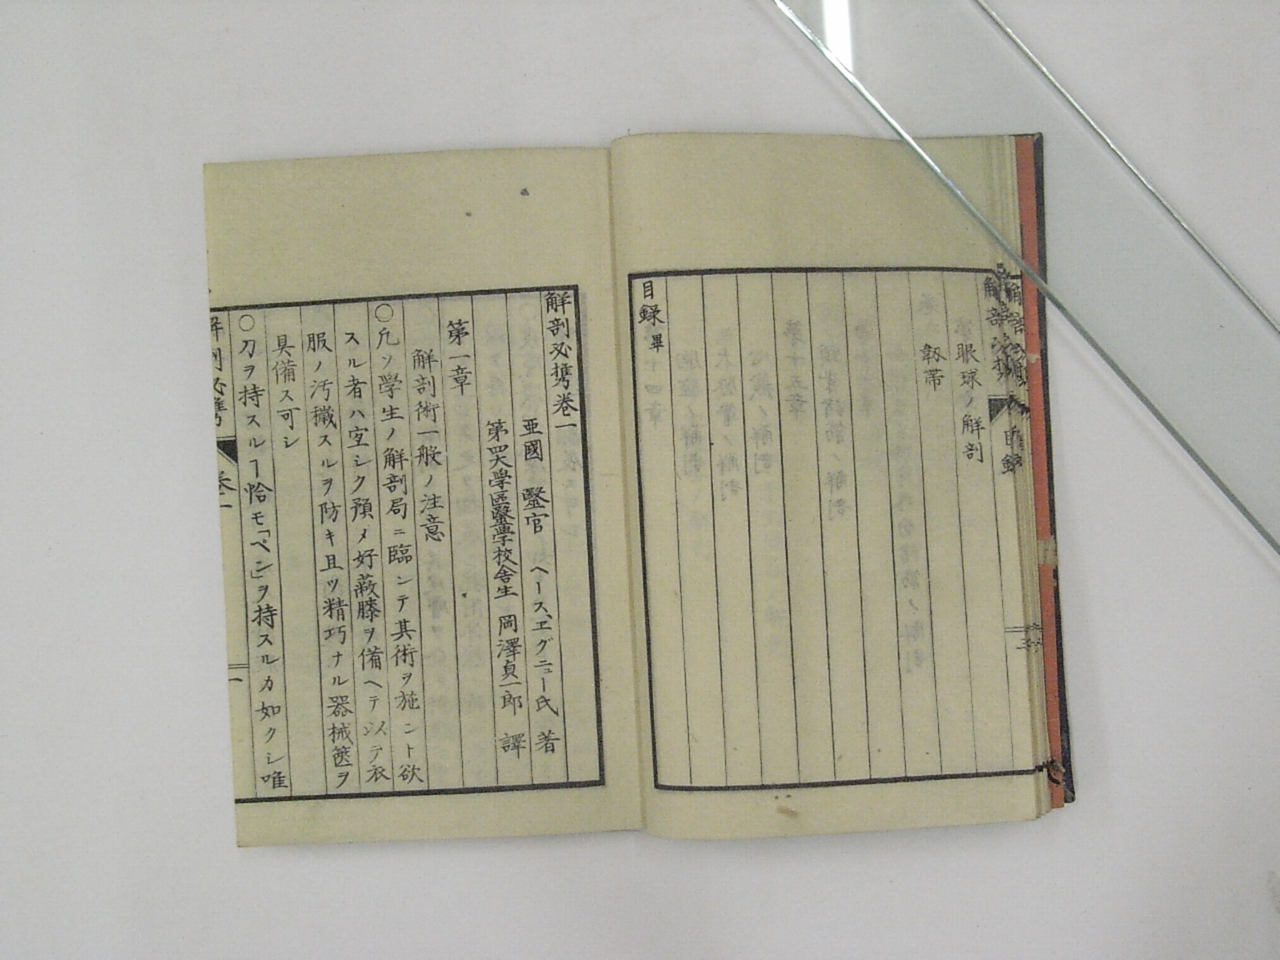 眼球ノ解剖
靱帯
目録畢
解剖必携巻一
亜國 醫官 ヘース、エグニュー氏 著
第四大學區醫學校舎生 岡澤貞一郎 譯
第一章
解剖術一般ノ注意
〇凡ソ學生ノ解剖局ニ臨ンテ其術ヲ施ント欲
スル者ハ宜シク預メ好蔽膝ヲ備ヘテ以テ衣
服ノ汚穢スルヲ防キ且ツ精巧ナル器械篋ヲ
具備ス可シ
〇刀ヲ持スルヿ恰モ「ペン」ヲ持スルカ如クシ唯
解剖必携 巻一 一